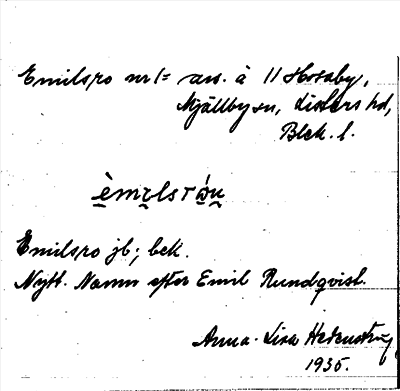 Emilsro nr 1 = avs. à 11 Hosaby,
Mjällby sn, Listers hd,
Blek. l.
Emilsro jb; bek.
Nytt. Namn efter Emil Rundqvist.
Anna-Lisa Hedenstråg
1935.